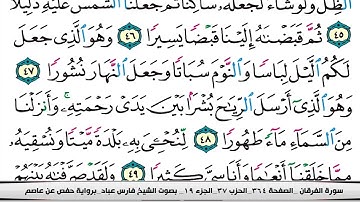 ٱلظِّلَّ وَلَوْ شَآءَ لَجَعَلَهُۥ سَاكِنًا ثُمَّ جَعَلْنَا ٱلشَّمْسَ عَلَيْهِ دَلِيلًا
٤٥ ثُمَّ قَبَضْنَٰهُ إِلَيْنَا قَبْضًا يَسِيرًا ٤٦ وَهُوَ ٱلَّذِى جَعَلَ
لَكُمُ ٱلَّيْلَ لِبَاسًا وَٱلنَّوْمَ سُبَاتًا وَجَعَلَ ٱلنَّهَارَ نُشُورًا ٤٧
وَهُوَ ٱلَّذِىٓ أَرْسَلَ ٱلرِّيَٰحَ بُشْرًۢا بَيْنَ يَدَىْ رَحْمَتِهِۦ ۚ وَأَنزَلْنَا
مِنَ ٱلسَّمَآءِ مَآءً طَهُورًا ٤٨ لِّنُحْـِۧىَ بِهِۦ بَلْدَةً مَّيْتًا وَنُسْقِيَهُۥ
مِمَّا خَلَقْنَآ أَنْعَٰمًا وَأَنَاسِىَّ كَثِيرًا ٤٩ وَلَقَدْ صَرَّفْنَٰهُ بَيْنَهُمْ
سورة الفرقان _ الصفحة ٣٦٤ _ الحزب ٣٧ _ الجزء ١٩ _ بصوت الشيخ فارس عباد _ برواية حفص عن عاصم